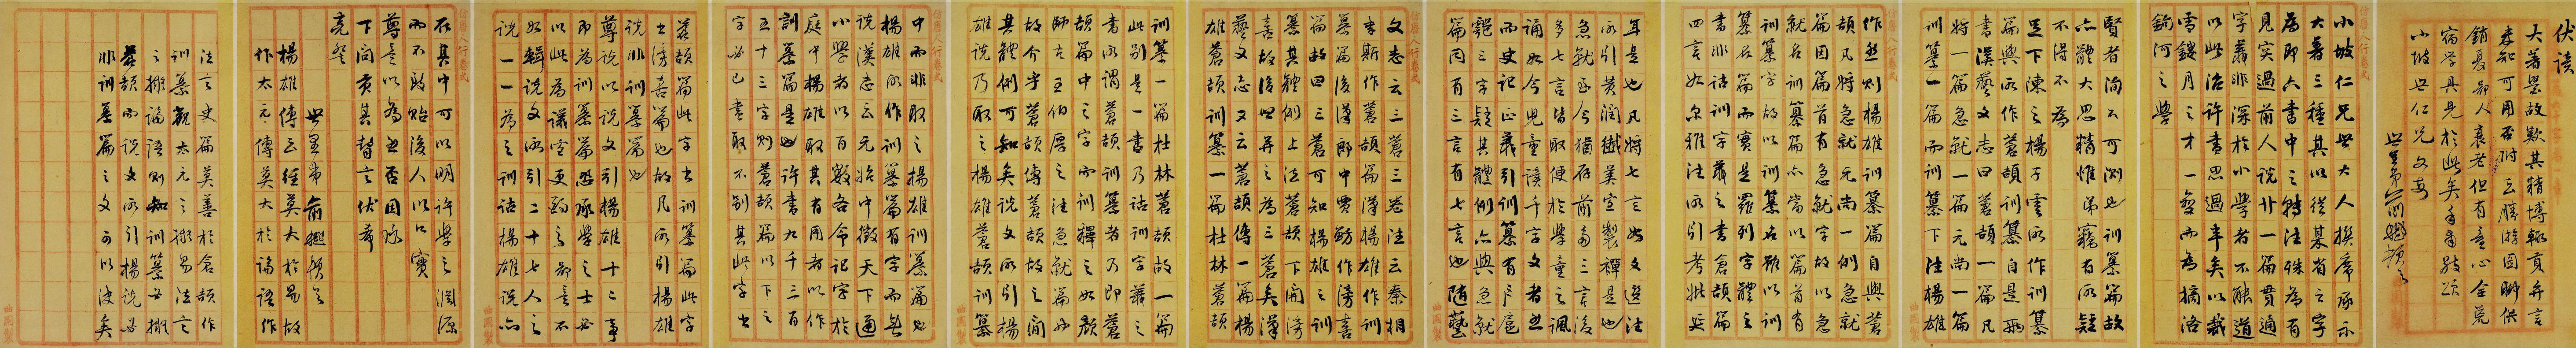 伏讀
大著畢故歎其精博輒貢弁言
未知可用否附上勝游圖聊供
銷夏鄙人衰老但有童心全荒
宿學具見於此矣手肅敬頌
小坡世仁兄文安
世愚弟俞樾頓首
小坡仁兄世大人撰席承示
大著三種其以從某省之字
為即六書中之轉注殊為有
見突過前人說廿一篇貫通
字義非深於小學者不能道
以此治許書思過半矣以裁
雪鏤月之才一變而為摘洛
鉤河之學
賢者洵不可測也訓纂篇故
六體大思精惟弟竊有所疑
不得不為
足下陳之楊子雲所作訓纂
篇與所作蒼頡訓纂自是兩
書漢藝文志曰蒼頡一篇凡
將一篇急就一篇元尚一篇
訓纂一篇而訓纂下注楊雄
作然則楊雄訓纂篇自與蒼
頡凡將急就元尚一例急就
篇因篇首有急就字故以急
就名訓纂篇亦當以篇首有
訓纂字故以訓纂名雖以訓
纂名篇而實是羅列字體之
書非詁訓字義之書倉頡篇
四言如爾雅注所引考妣延
年是也凡將七言如文選注
所引黃潤纖美宜製襌是也
急就至今猶存前多三言後
多七言皆取便於學童之諷
誦如今兒童讀千字文者然
而史記正義引訓纂有戶扈
鄠三字疑其體例亦與急就
篇同有三言有七言也隨藝
文志云三蒼三卷注云秦相
李斯作蒼頡篇漢楊雄作訓
纂篇後漢郎中賈魴作滂喜
篇故曰三蒼可知楊雄之訓
纂其體例上法蒼頡下開滂
喜故後世并之為三蒼矣漢
藝文志又云蒼頡傳一篇楊
雄蒼頡訓纂一篇杜林蒼頡
訓纂一篇杜林蒼頡故一篇
此別是一書乃詁訓字義之
書所謂蒼頡訓纂者乃即蒼
頡篇中之字而訓釋之如顏
師古王伯厚之注急就篇然
故介乎蒼頡傳蒼頡故之間
其體例可知矣說文所引楊
雄說乃取之楊雄蒼頡訓纂
中而非取之楊雄訓纂篇也
楊雄所作訓纂篇有字而無
說漢志云元始中徵天下通
小學者以百數各令記字於
庭中楊雄取其有用者以作
訓纂篇是也許書九千三百
五十三字則蒼頡篇以下之
字必已盡取不別其此字出
蒼頡篇此字出訓纂篇此字
出滂喜篇也故凡所引楊雄
說非訓纂篇也
尊說以說文引楊雄十二事
即為訓纂篇恐承學之士必
以此為議宜更酌之鄙意不
如輯說文所引二十七人之
說一一為之訓詁楊雄說亦
在其中可以明許學之淵源
而不致貽後人以口實
尊意以為然否因承
下問貢其瞽言伏希
亮詧
世愚弟俞樾頓首
楊雄傳云經莫大於易故
作太元傳莫大於論語作
法言史篇莫善於倉頡作
訓纂觀太元之擬易法言
之擬論語則知訓纂必擬
蒼頡而說文所引楊說必
非訓纂篇之文可以決矣